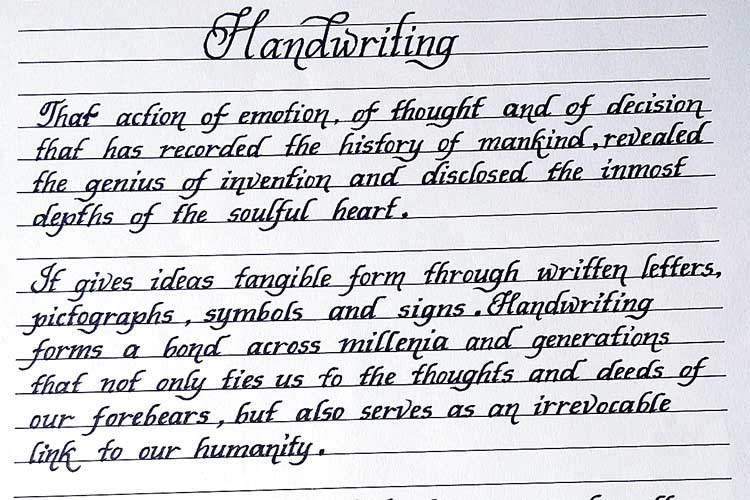 Handwriting
That action of emotion, of thought and of decision
that has recorded the history of mankind, revealed
the genius of invention and disclosed the inmost
depths of the soulful heart.
It gives ideas tangible form through written letters,
pictographs, symbols and signs. Handwriting
forms a bond across millenia and generations
that not only ties us to the thoughts and deeds of
our forebears, but also serves as an irrevocable
link to our humanity.